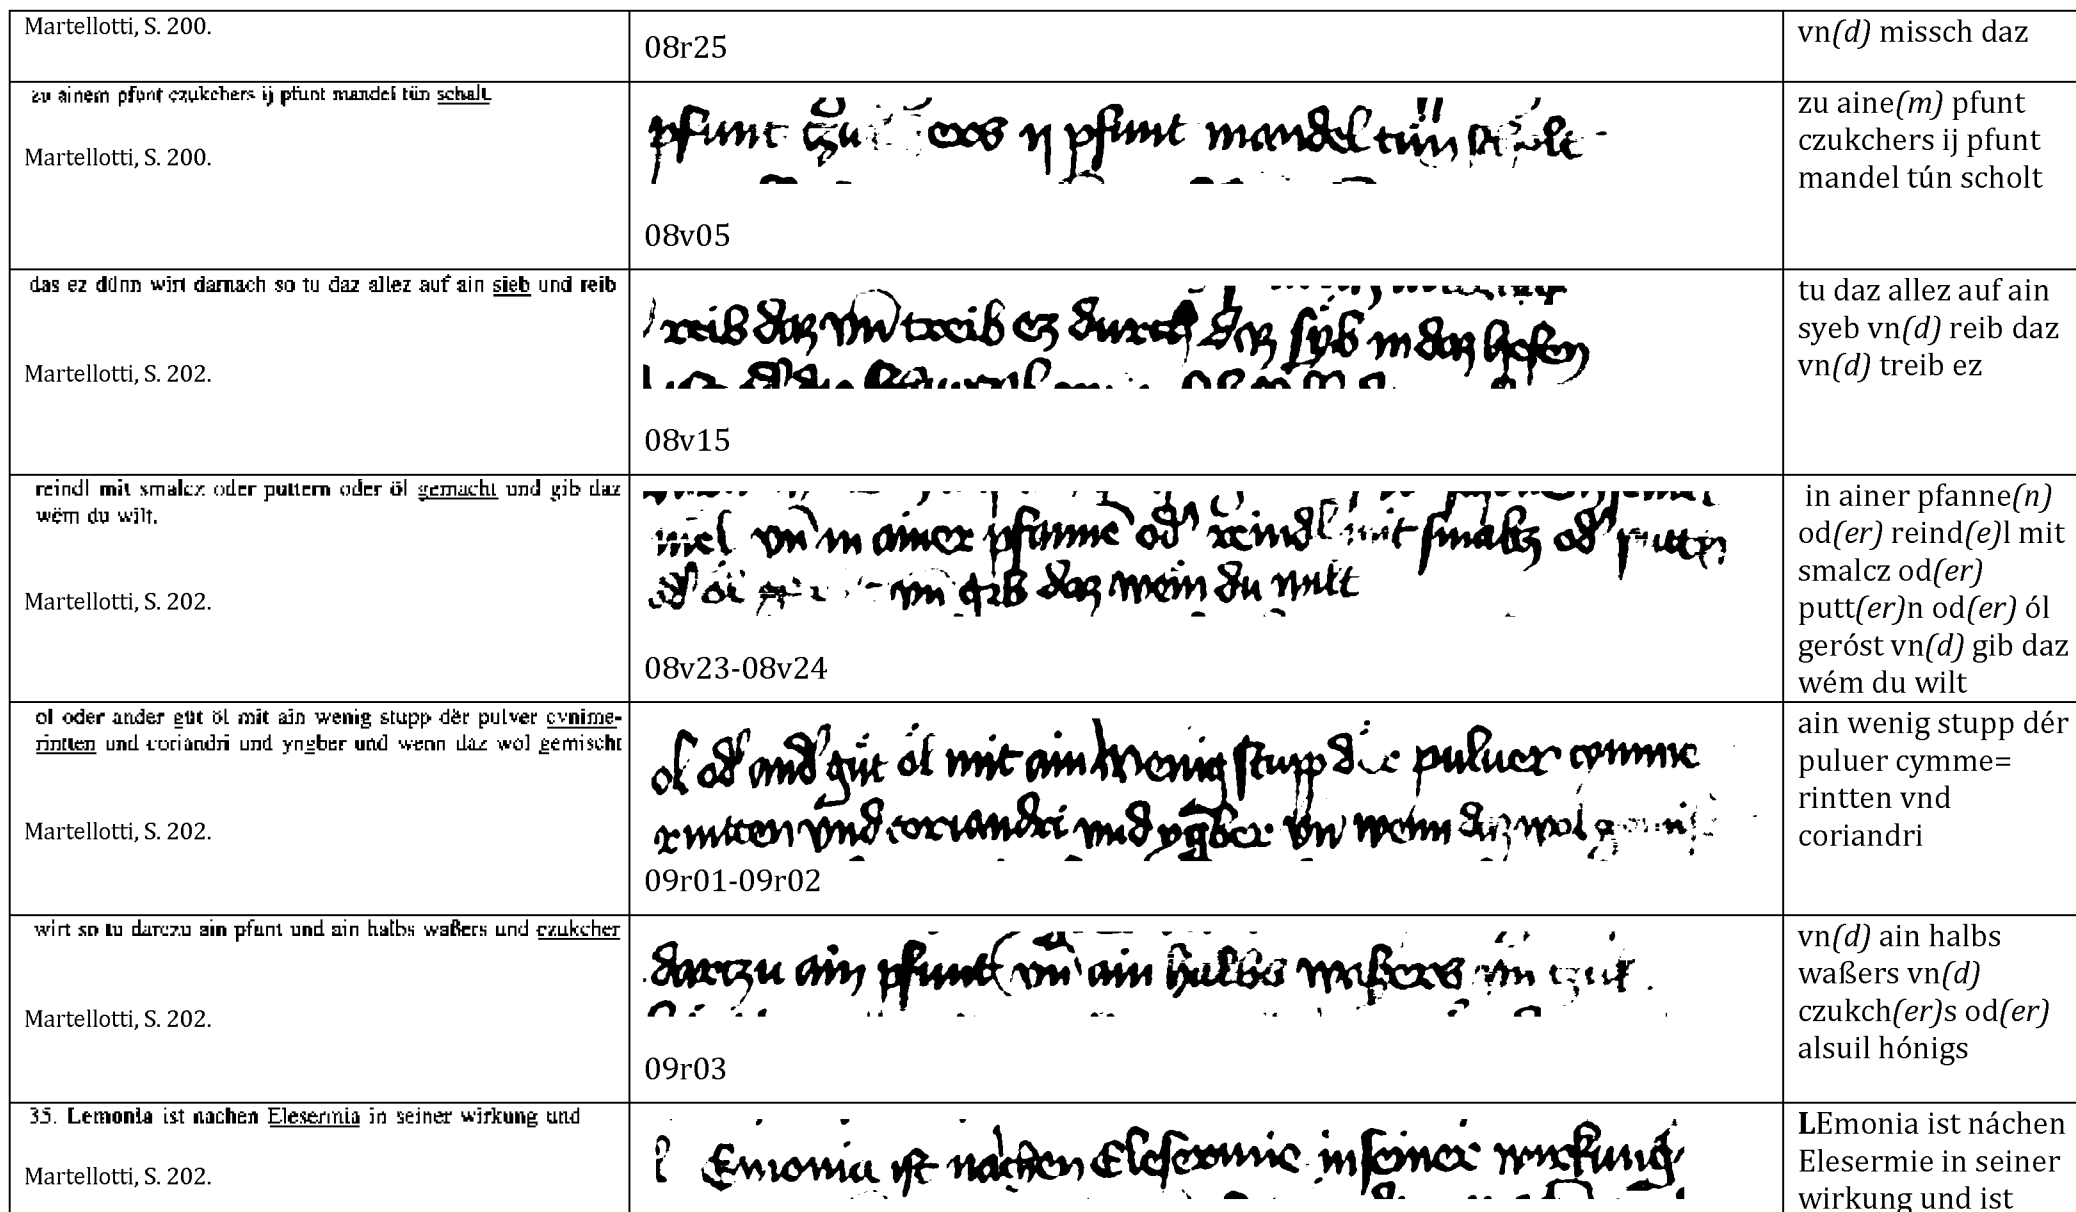 Martellotti, S. 200.
08r25
vn(d) missch daz
zu ainem pfunt czukchers ij pfunt mandel tün schalt
Martellotti, S. 200.
pfunt ers ij pfunt mandel tún
08v05
zu aine(m) pfunt
czukchers ij pfunt
mandel tún scholt
das ez dünn wirt darnach so tu daz allez auf ain sieb und reib
Martellotti, S. 202.
reib daz vn treib ez durch daz syb in daz hefen
08v15
tu daz allez auf ain
syeb vn(d) reib daz
vn(d) treib ez
reindl mit smalcz oder puttern oder öl gemacht und gib daz
wëm du wilt.
Martellotti, S. 202.
mel vn in ainer pfanne od reindl mit smalcz od puttn
od ol vn gib daz wem du wilt
08v23-08v24
in ainer pfanne(n)
od(er) reind(e)l mit
smalcz od(er)
putt(er)n od(er) ól
geróst vn(d) gib daz
wém du wilt
ol oder ander güt öl mit ain wenig stupp dër pulver cynime-
rintten und coriandri und yngber und wenn daz wol gemischt
Martellotti, S. 202.
ol od and gut ól mit ain wenig stupp puluer cymme
rintten vnd coriandri vnd ygber vn wenn daz wol
09r01-09r02
ain wenig stupp dér
puluer cymme=
rintten vnd
coriandri
wirt so tu darczu ain pfunt und ain halbs waßers und czukcher
Martellotti, S. 202.
darczu ain pfunt vn ain halbs waßers vn
09r03
vn(d) ain halbs
waßers vn(d)
czukch(er)s od(er)
alsuil hónigs
35. Lemonia ist nachen Elesermia in seiner wirkung und
Martellotti, S. 202.
l Emonia ist náchen Elesermie in seiner wirkung
LEmonia ist náchen
Elesermie in seiner
wirkung und ist